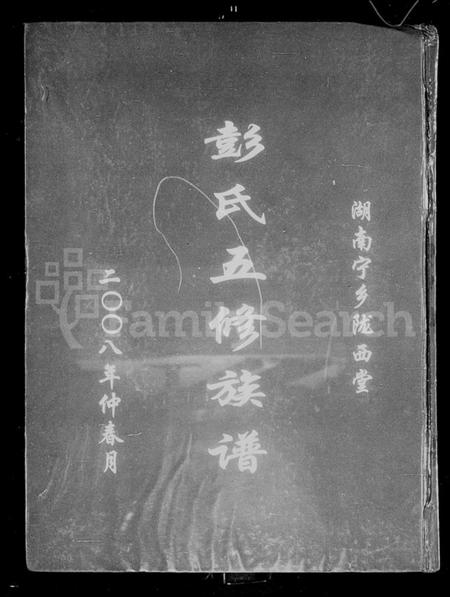 湖南宁乡陇西堂
彭氏五修族谱
二〇〇八年仲春月
FamilySearch